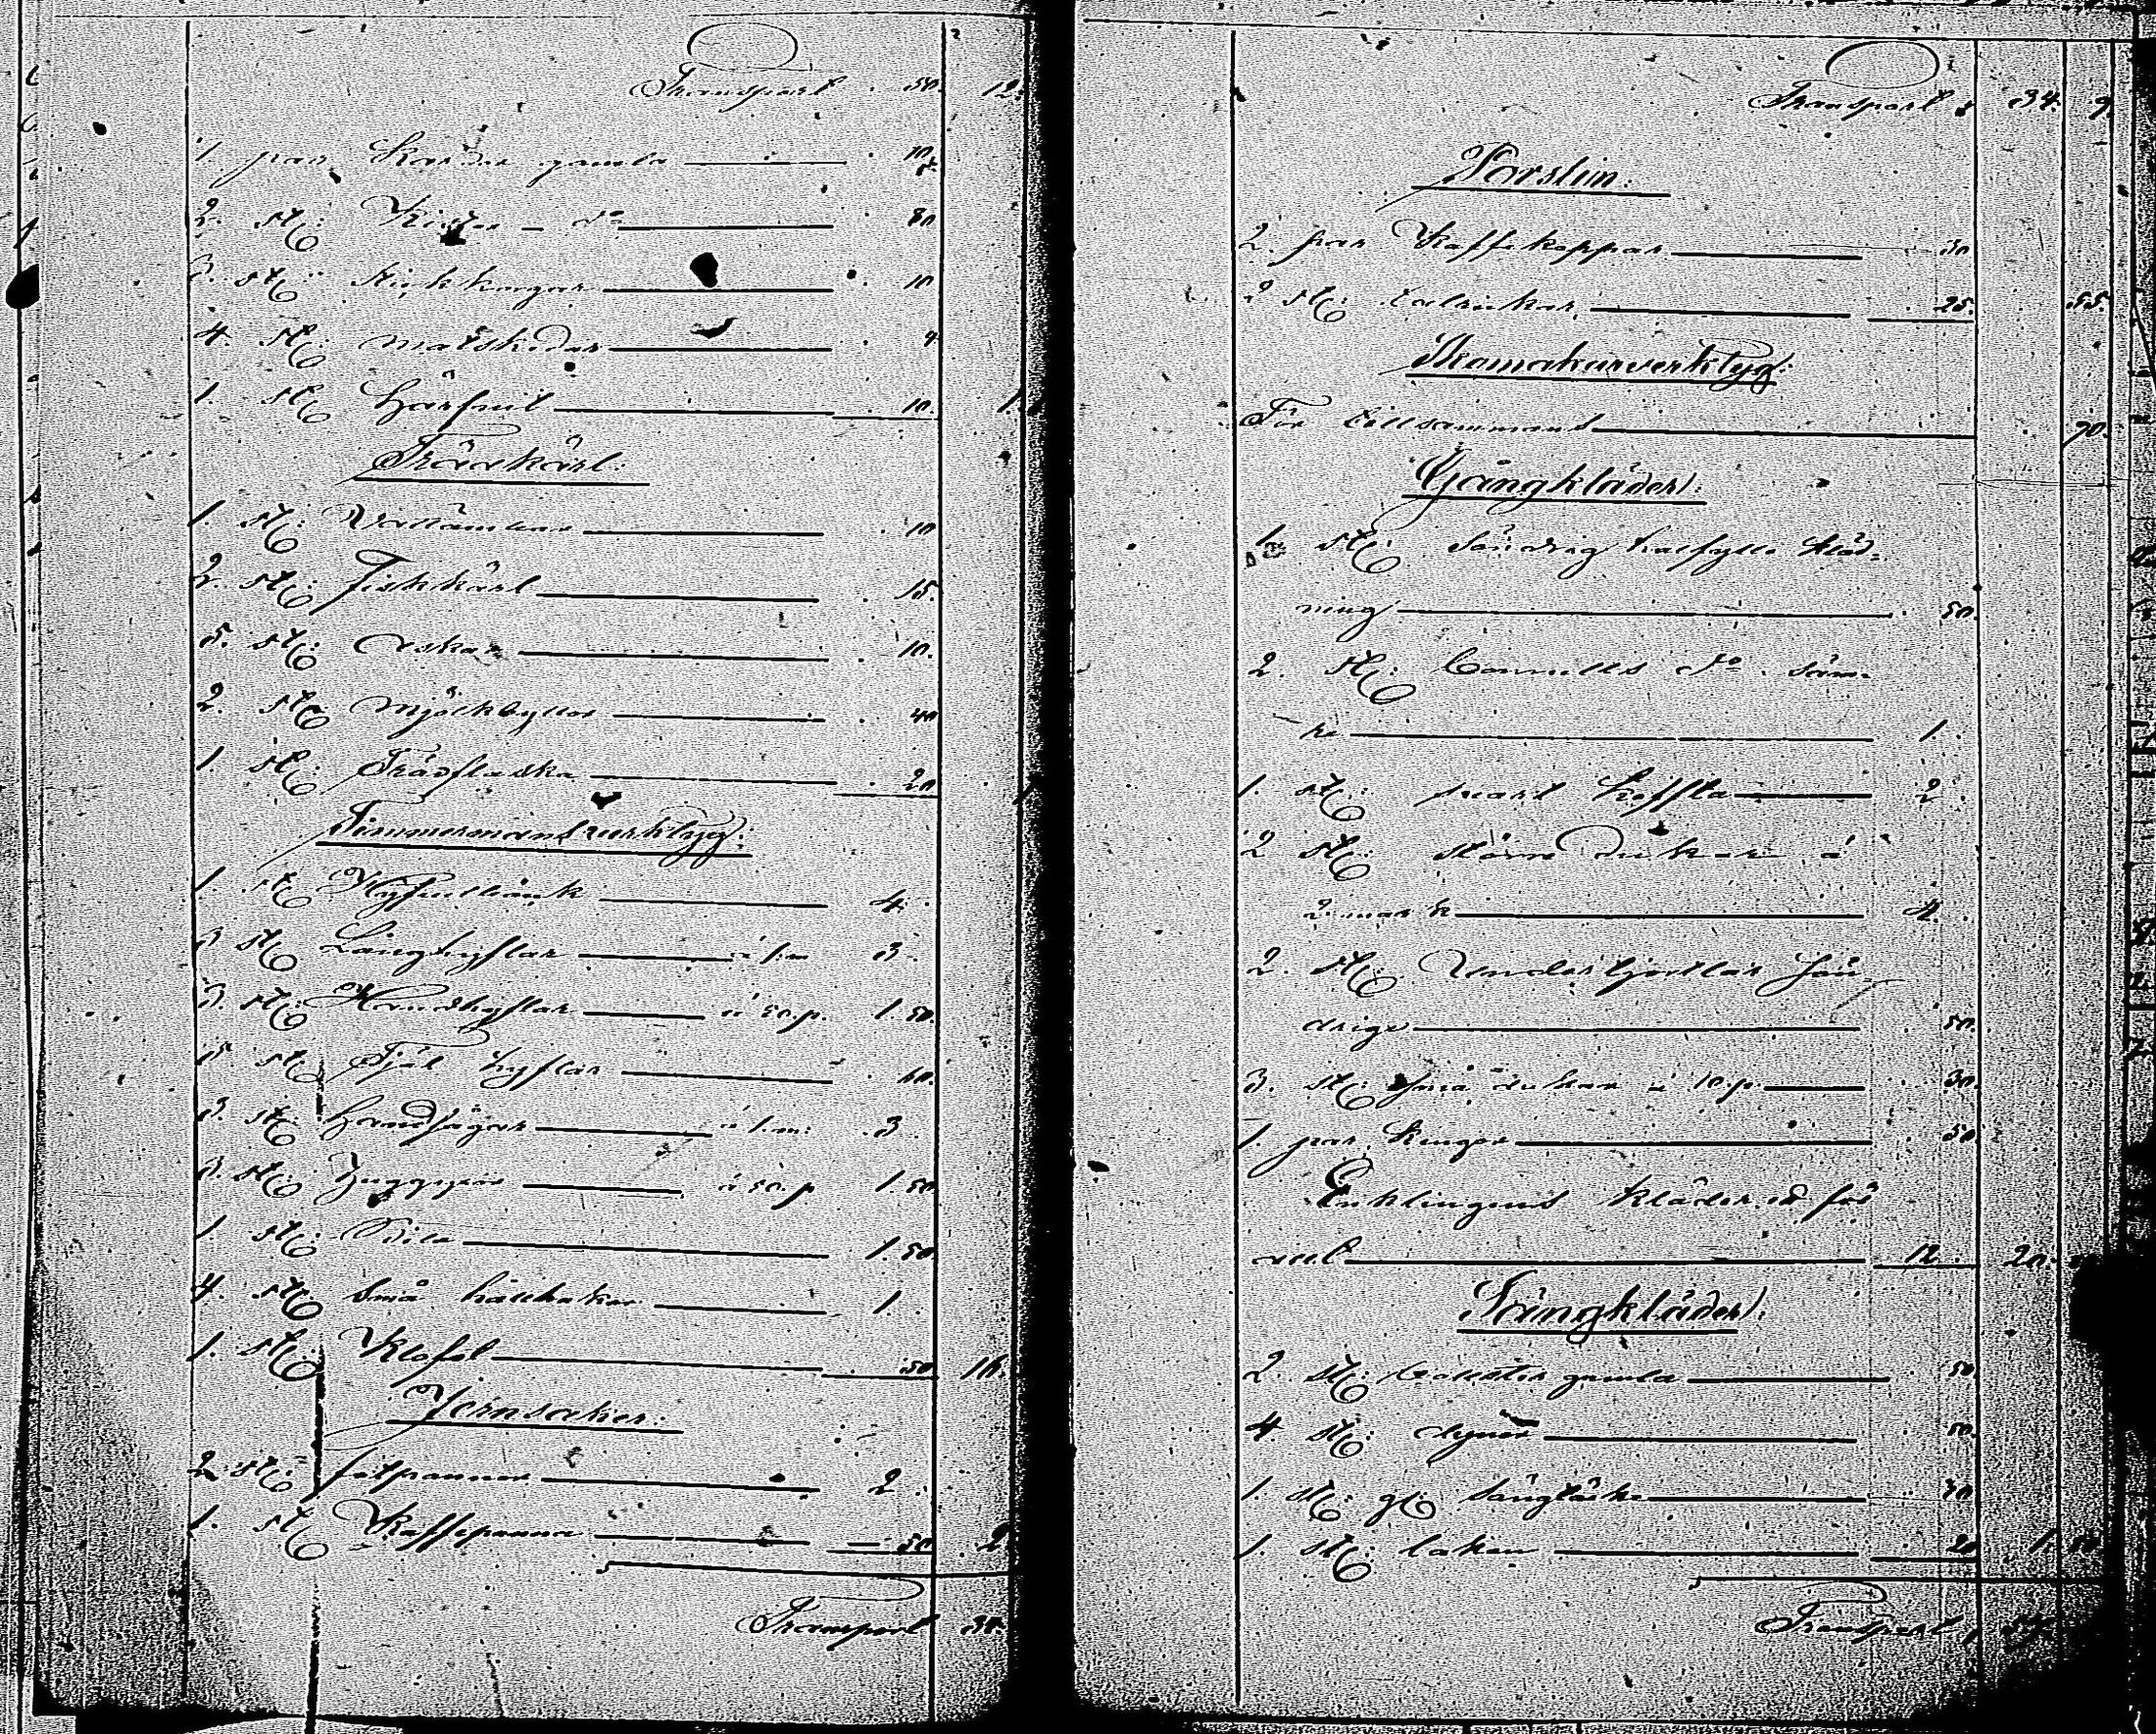 Transport . 50. 12.
1 par Kardor gamla . 10
2. st: Kistor – do . 80
3. st: . 10
4. st: matskedar . 4
1. st: Hårsåll . 10. 1.
Trääkärl:
1. st: Vattuämbar . 10
2. st: Fiskkärl . 15.
5. st: Askar . 10.
2. st: Mjölkbyttor . 40
1. st: Träflaska . 20
Timmermansverktyg:
1. st: Hyfvelbänk 4.
3 st: Långhyflar à 1.m 3.
3. st: Handhyflar à 50.p. 1.50.
st: hyflar . 60.
3. st: Handsågar à 1.m: 3.
3. st: Huggyxor à 50.p 1.50
1. st: Bila 1.50
4. st: små hållhakar 1.
1. st: Klofål . 50 16.
Jernsaker:
2. st: fotpannor 2.
1. st: Kaffepanna 50 2
Transport 34.
Transport 34. 9
Porslin:
2. par Kaffekoppar 30
2 st: talrickar 25. 55.
Skomakareverktyg:
För tillsammans . 90.
Gångkläder:
1 st: söndrig halfylle kläd-
ning . 50.
2. st: Bomulls do säm-
re 1.
1. st: svart kofta 2
2 st: större dukar à
2 mark 4.
2. st: Underkjortlar sön-
drige . 50.
3. st: små dukar à 10.p. . 30.
1 par Kängor . 50
Enklingens kläder
12. 20.
Sängkläder:
2. st: bolster gamla . 50
4 st: dynor . 50.
1. st: gl: sängtäcke
1. st: lakan 20 1.
Transport